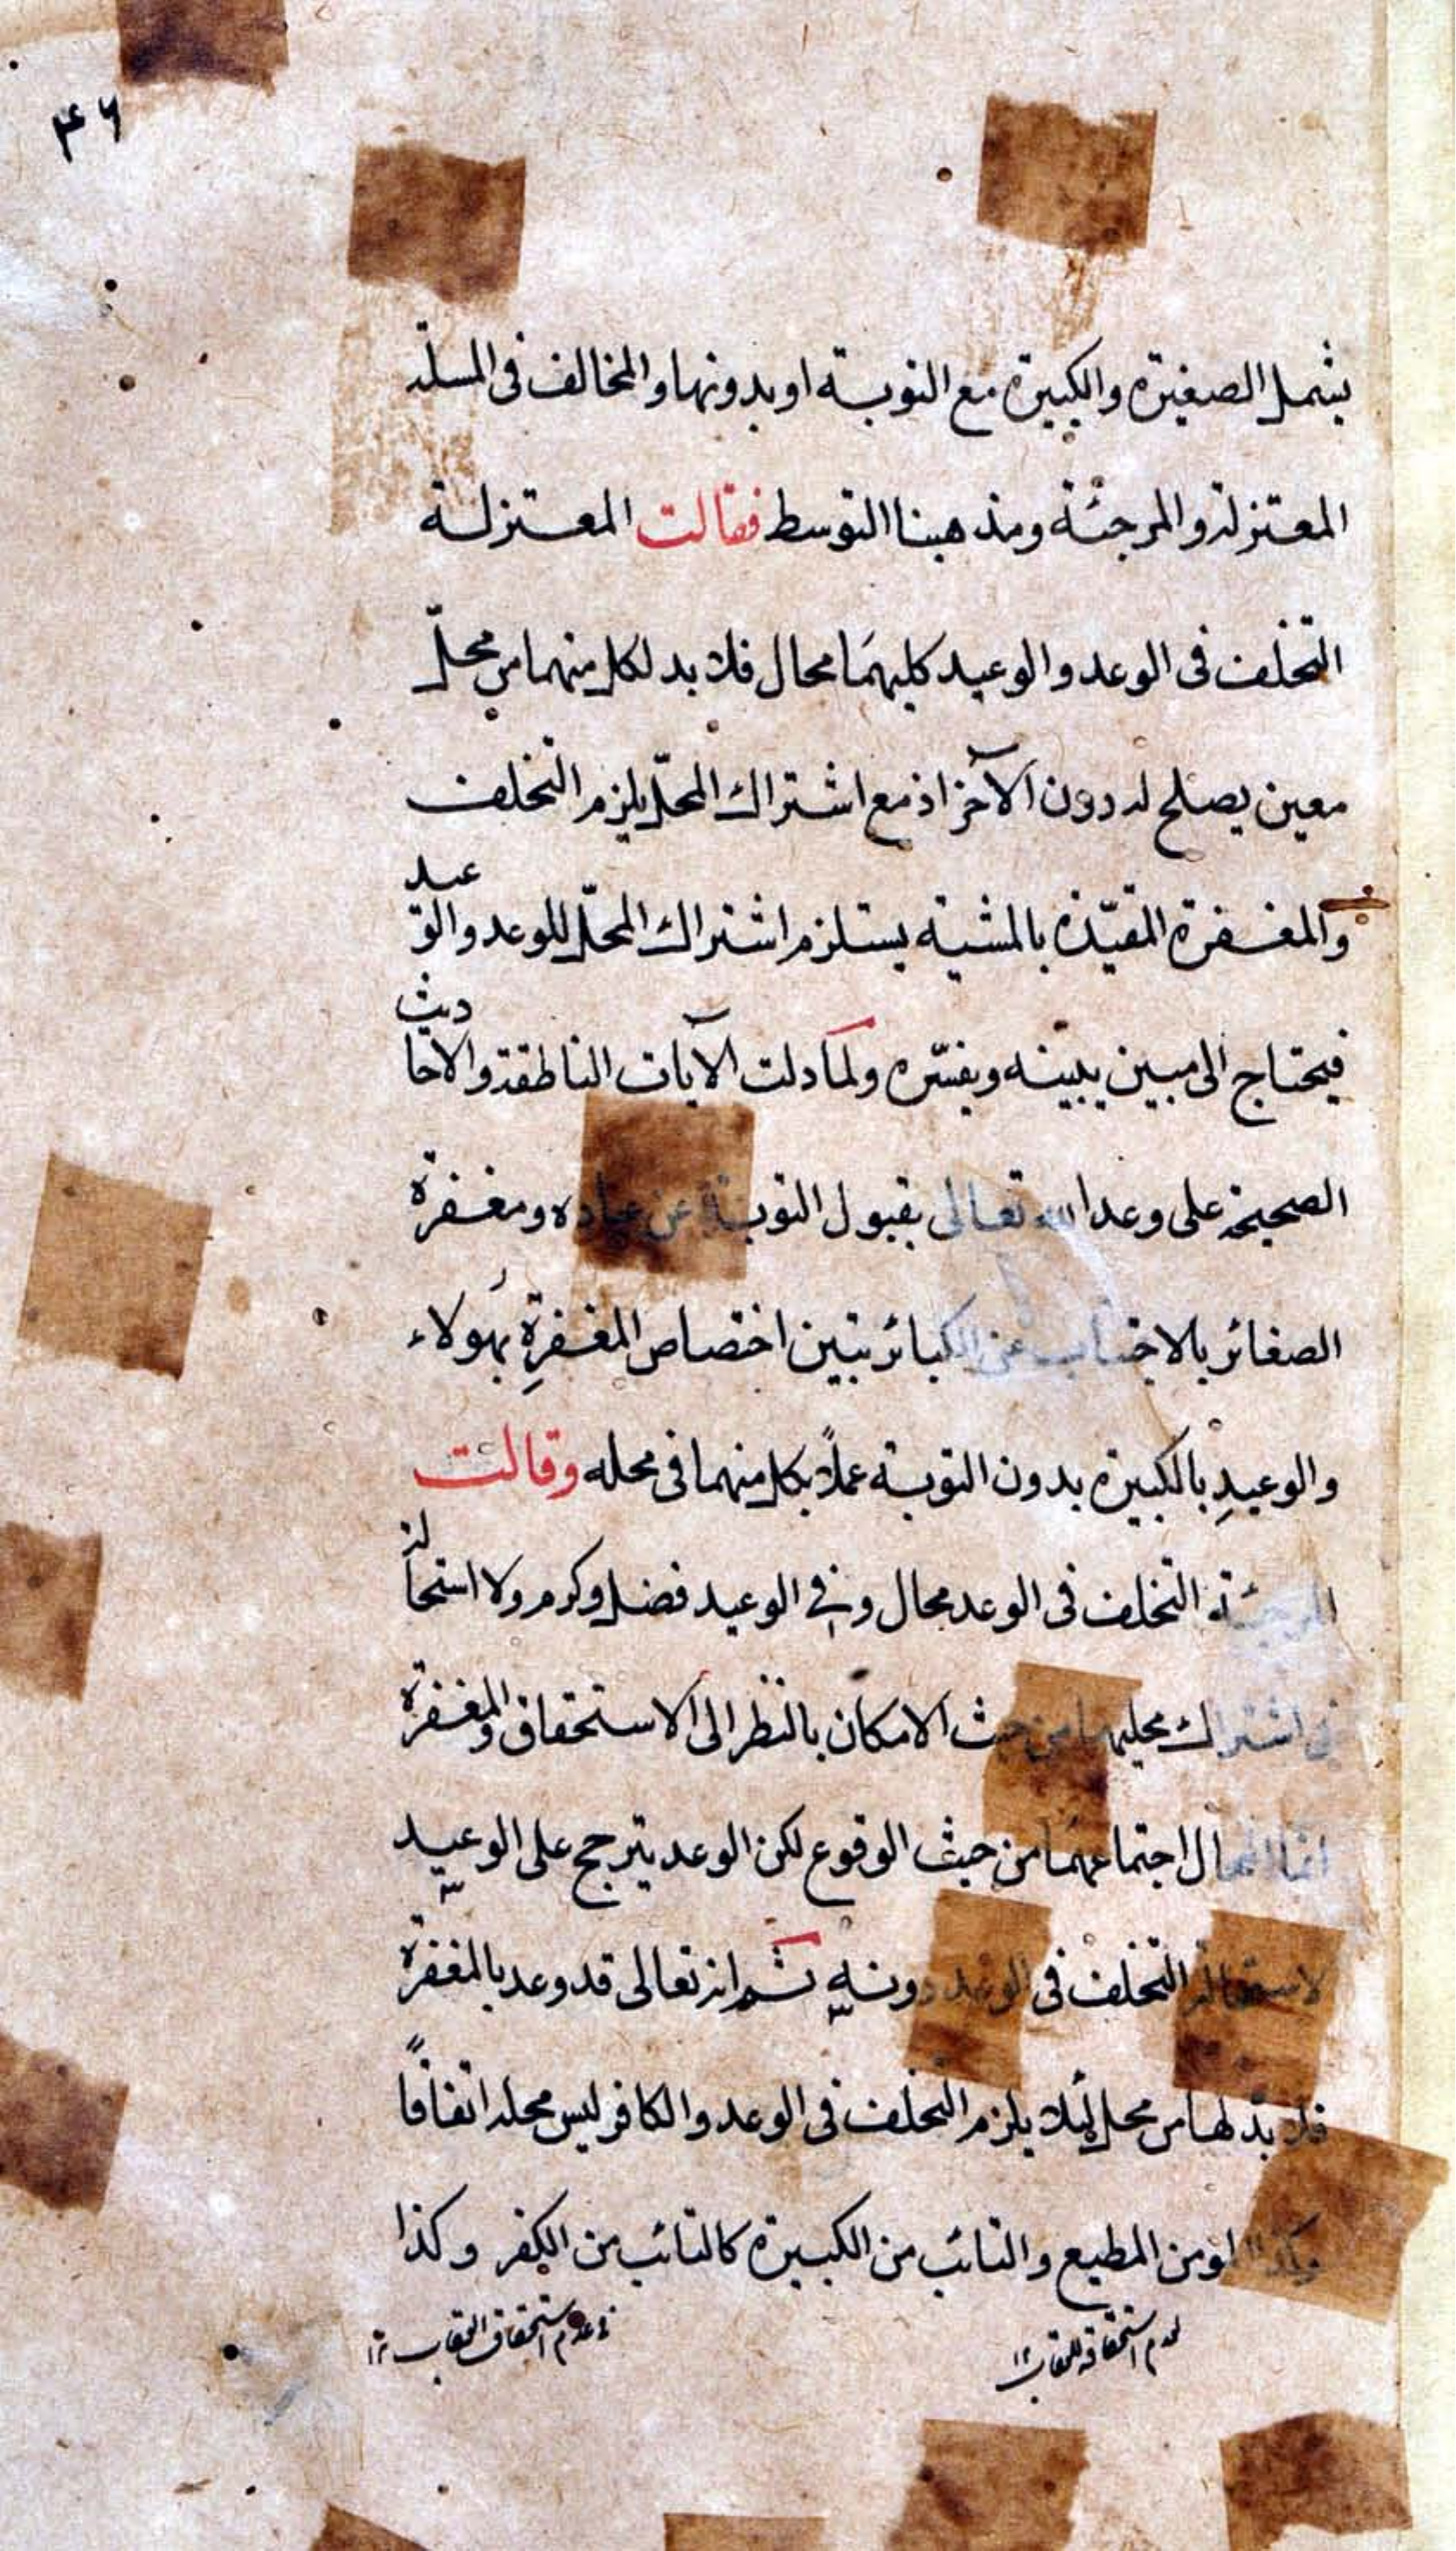 ۴۶
يشمل الصغيرة والكبيرة مع التوبة او بدونها والمخالف فى المسئلة
المعتزلة والمرجئة ومذهبنا التوسط فقالت المعتزلة
التخلف فى الوعد والوعيد كليهما محال فلا بد لكل منهما من محل
معين يصلح له دون الآخر اذ مع اشتراك المحل يلزم التخلف
والمغفرة المقيدة بالمشية يستلزم اشتراك المحل للوعد والوعيد
فيحتاج الى مبين يبينه ويفسره ولما دلت الآيات الناطقة والاحاديث
الصحيحة على وعد الله تعالى بقبول التوبة عن عباده ومغفرة
الصغائر بالاجتناب عن الكبائر تبين اختصاص المغفرة بهولاء
والوعيدِ بالكبيرة بدون التوبة عملاً بكل منهما فى محله وقالت
المرجئة التخلف فى الوعد محال وفى الوعيد فضل وكرم ولا استحالة
فى اشتراك محليهما من حيث الامكان بالنظر الى الاستحقاق والمغفرة
انما المحال اجتماعهما من حيث الوقوع لكن الوعد يترجح على الوعيد
لاستحالة التخلف فى الوعد دونه ثم انه تعالى قد وعد بالمغفرة
فلا بد لها من محل لئلا يلزم التخلف فى الوعد والكافر ليس محله اتفاقاً
وكذا المؤمن المطيع والتائب من الكبيرة كالتائب من الكفر وكذا
لعدم استحقاقه للعقاب ١٢
فى عدم استحقاق العقاب ١٢